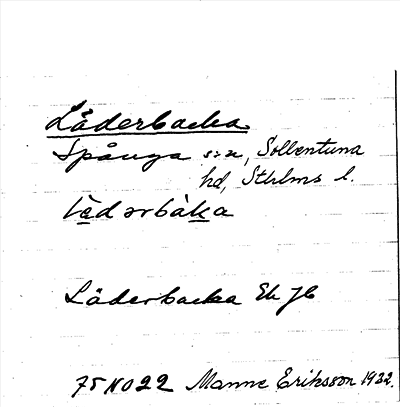 Läderbacka
Spånga s:n, Sollentuna
hd, Sthlms l.
Läderbacka Ek Jb
75 NO 22 Manne Eriksson 1932.